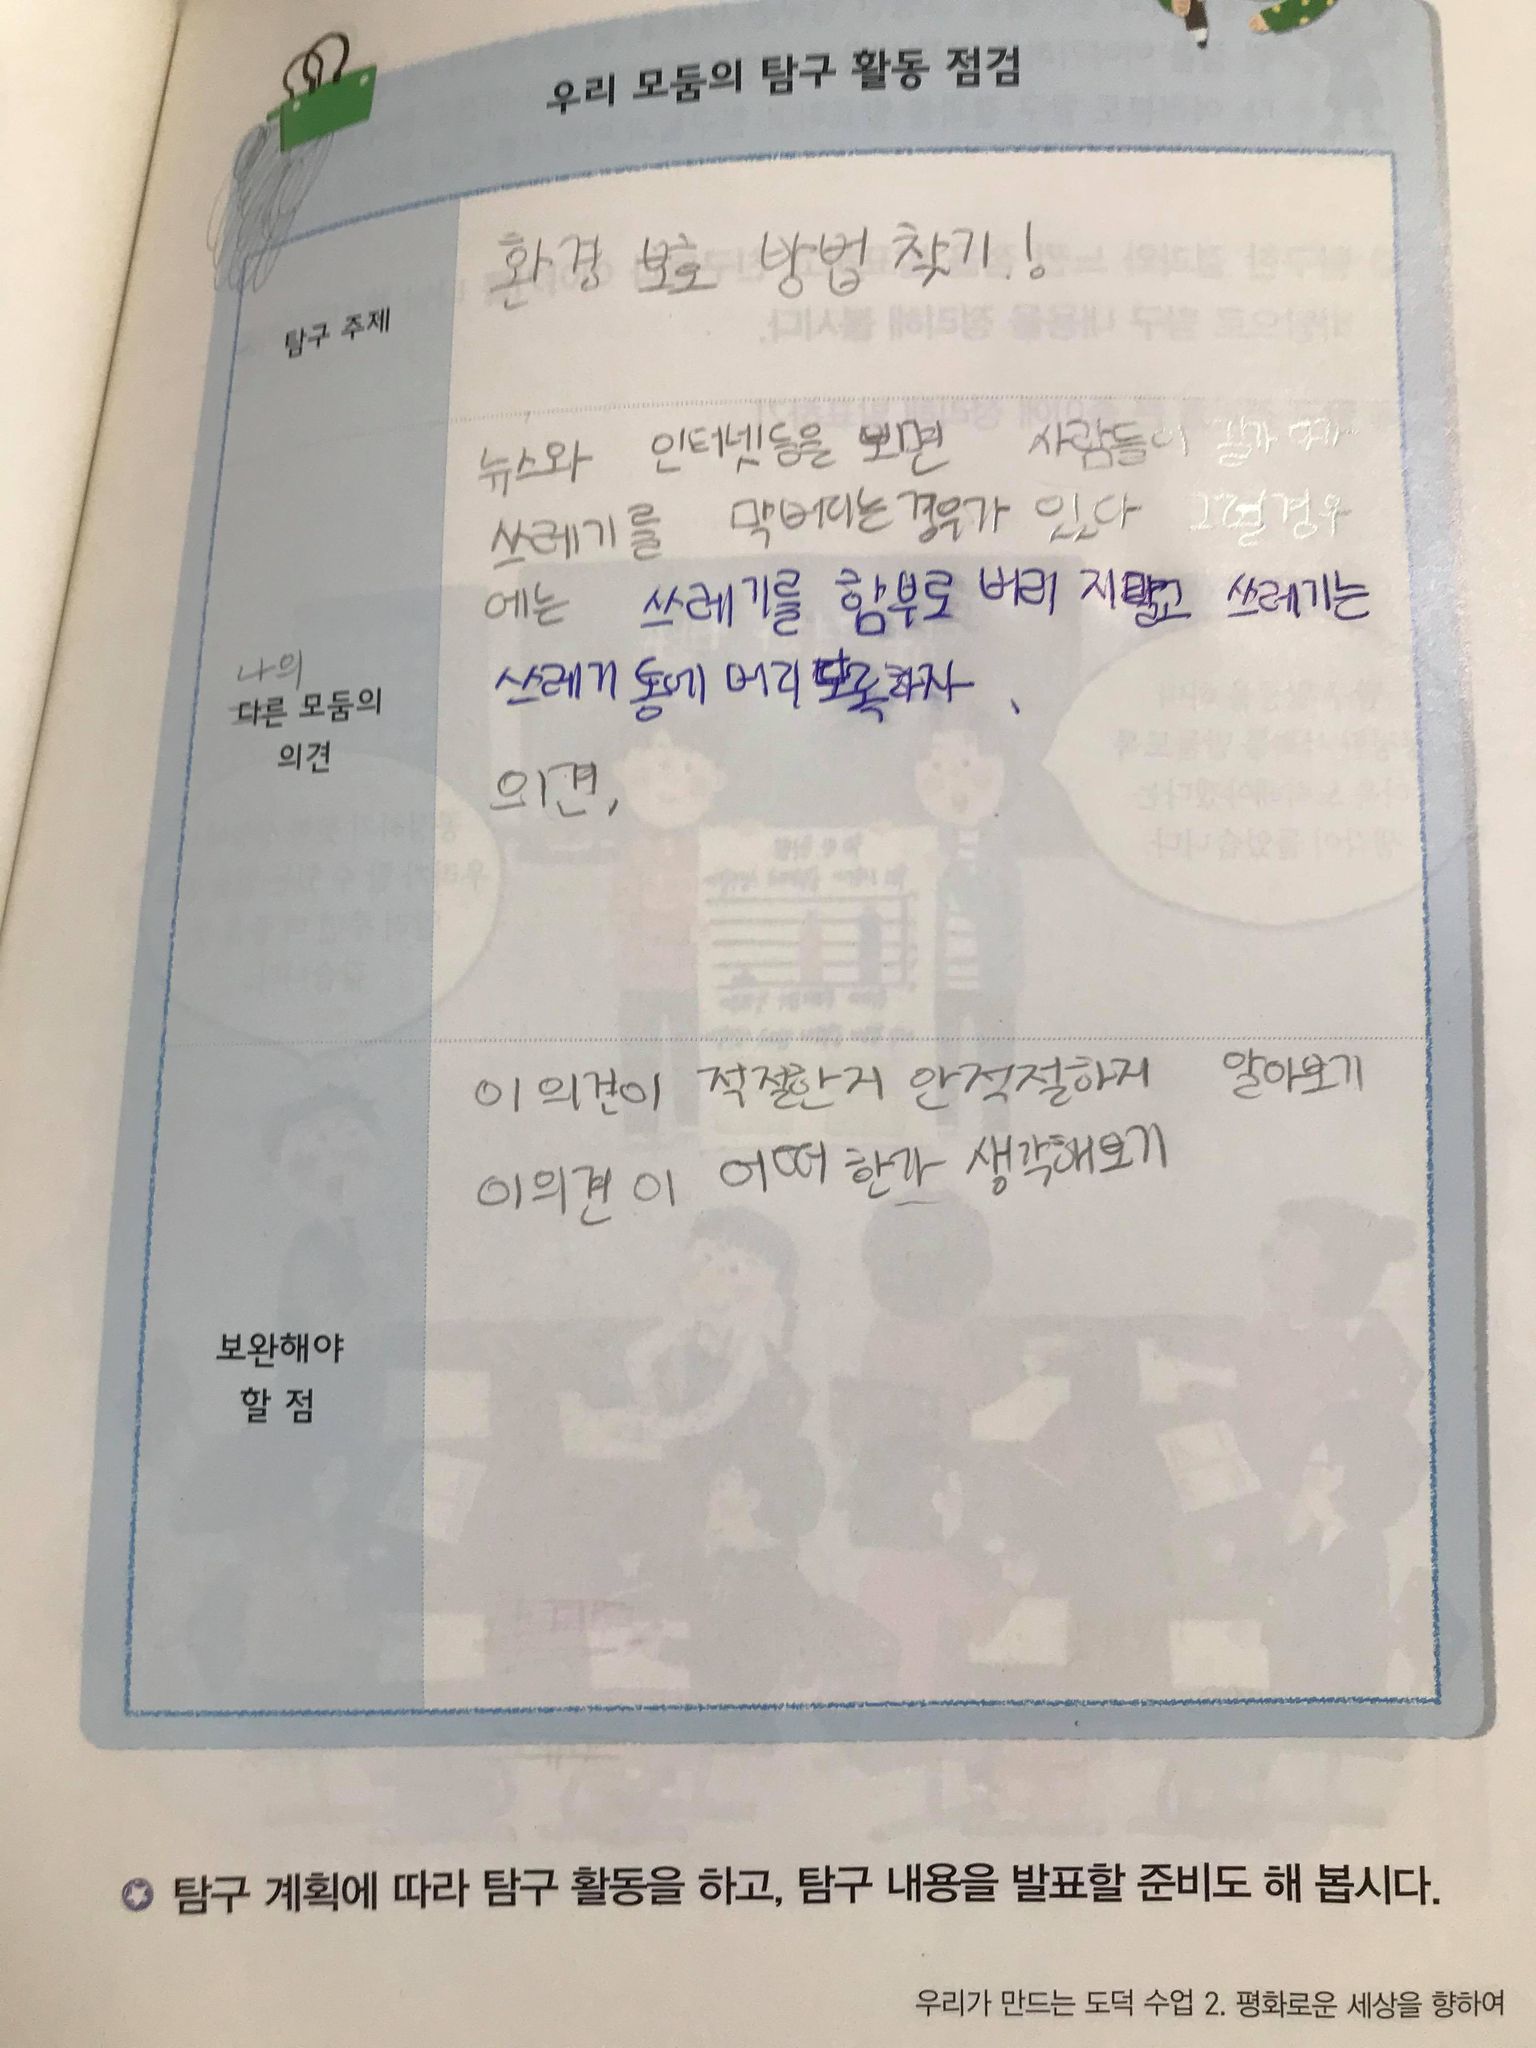 우리 모둠의 탐구 활동 점검
탐구 주제
환경 보호 방법 찾기!
나의
다른 모둠의
의견
뉴스와 인터넷등을 보면 사람들이
쓰레기를 막버리는경우가 있다 그럴경우
에는 쓰레기를 함부로 버리 지말고 쓰레기는
쓰레기 통에 버리 도록하자
의견,
보완해야
할 점
이 의견이 적절한지 안적절하지 알아보기
이의견 이 어떠 한가 생각해보기
탐구 계획에 따라 탐구 활동을 하고, 탐구 내용을 발표할 준비도 해 봅시다.
우리가 만드는 도덕 수업 2. 평화로운 세상을 향하여